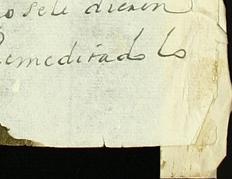 o se le dieren
Remeditado lo